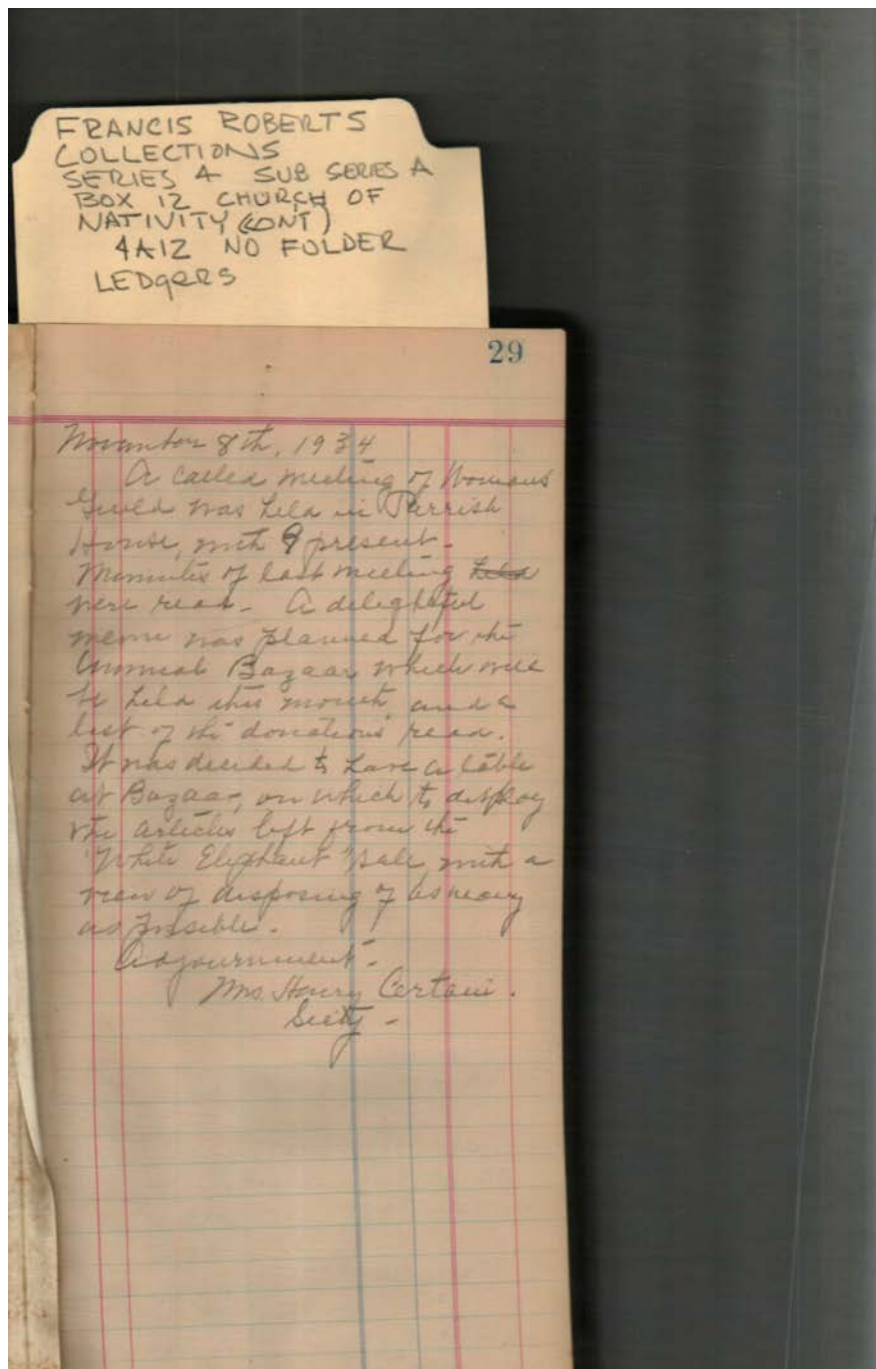 FRANCIS ROBERTS
COLLECTIONS
SERIES 4 SUB SERIES A
BOX 12 CHURCH OF
NATIVITY (CONT)
4A12 NO FOLDER
LEDgERS
29
November 8th, 1934
A called meeting of Womans
Guild was held in Parrish
House, with 9 present.
Minutes of last meeting held
were read. A delightful
menu was planned for the
Annual Bazaar which will
be held this month, and a
list of the donations read.
It was decided to have a table
at Bazaar, on which to display
the articles left from the
"White Elephant" sale, with a
view of disposing of as many
as possible.
Adjournment.
Mrs. Henry Certain.
Secty -